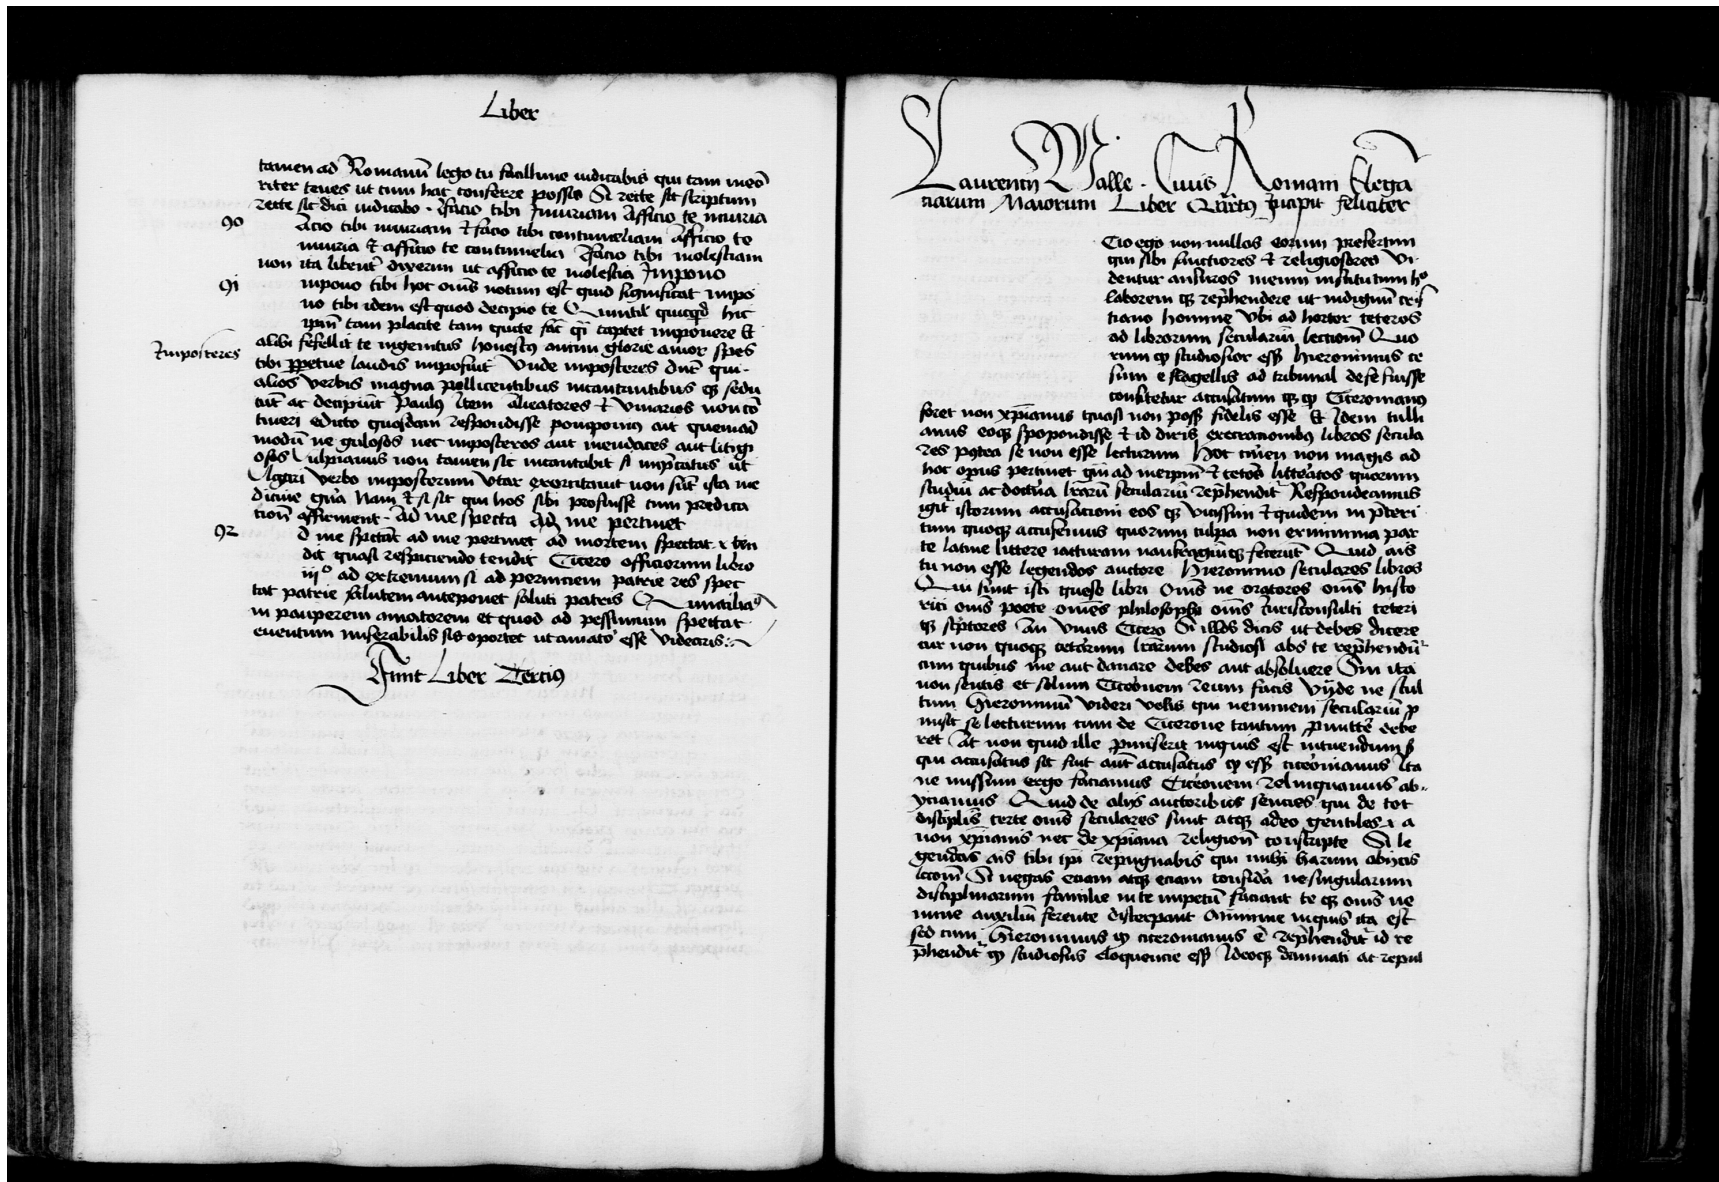 Liber
tamen ad Romanum lego tu facillime iudicabis qui tam meō
riter tenes ut cum hac conferre possis Si recte sit scriptum
recte sit dici iudicabo · Facio tibi Iniuriam Afficio te iniuria
90
Acio tibi iniuriam & facio tibi contumeliam Afficio te
iniuria & afficio te contumelia Facio tibi molestiam
non ita libent̄ dixerim ut afficio te molestia Impono
91
mpono tibi hoc om̄s notum est quid significat impo
no tibi idem est quod decipio te Quintil̄ quicq̄d hic
ip̄m tam placite tam quiete fac̄ captet imponere &
alibi fefellit te ingenitus honestꝰ animi glorie amor spes
Imposteres
tibi ꝑpetue laudis imposuit Unde imposteres dn̄t qui·
alios verbis magna pollicentibus incantantibus qꝫ sedu
cūt ac decipiūt Paulꝰ Item alieatores & vinarios non cō
tineri edicto quosdam respondisse pomponiꝰ ait quemad
modū ne gulosos nec imposteros aut mendaces aut litigi
osos Vulpianus non tamen sic incantabit si imp̄catus ut
Ulgari verbo impostorum utar exorcitauit non sūt ista me
dicine gn̄a Nam & si sit qui hos sibi profuisse cum predica
cion̄ affirment · Ad me specta Ad me pertinet
92
D me spectat ad me pertinet ad mortem spectat · i · ten
dit quasi respiciendo tendit Cicero officiorum libro
iijº ad extremum si ad perniciem patrie res spec
tat patrie salutem anteponet saluti patris Quintilianꝰ
in pauperem amatorem et quod ad pessimum spectat
euentum miserabilis sis oportet ut amatoꝰ esse videaris:~
Finit Liber Terciꝰ
Laurencij Valle · Ciuis Romani Elegā
ciarum Maiorum Liber Quartꝰ Incipit feliciter
Cio ego non nullos eorum presertim
qui sibi sanctiores & religiosores vi·
dentur ausuros meum institutum hº
laborem qꝫ rep̄hendere ut indignū cris
tiano homine Vbi ad hortor ceteros
ad librorum seculariū lectionē Quo
rum ꝙ studiosior essꝫ Hieronimus ce
sum e flagellis ad tribunal dei se fuisse
confitetur accusatum qꝫ ꝙ Ciceromanꝰ
foret non xp̄ianus quasi non possꝫ fidelis esse & Idem tulli
anus eoqꝫ spopondisse & id diris execracionibꝰ libros secula
res postea se non esse lecturum Hoc crimen non magis ad
hoc opus pertinet qn̄ ad meip̄m & ceteros litteratos quorum
studiū ac doctrina lr̄arū seculariū rep̄hendit̄ Respondeamus
igit̄ istorum accusacioni eos qꝫ vicissim & quidem in pteri
tum quoqꝫ accusemus quorum culpa non ex minima par
te latine littere iacturam naufragiūqꝫ fecerūt Quid ais
tu non esse legendos auctore Hieronimo seculares libros
Qui sunt isti queso libri Om̄s ne oratores om̄s histo
rici om̄s poete om̄es philosophi om̄s iurisconsulti ceteri
qꝫ sc̄ptores An vnus Cicero Si illos dicis ut debes dicere
cur non quoqꝫ ceterorum lr̄arum studiosi abs te rep̄hendūt̄
cum quibus me aut dānare debes aut absoluere Sin ita
non sentis et solum Ciceronem reum facis Vide ne stul
tum Hieronimū videri velis qui neminem seculariū p
misit se lecturum cum de Cicerone tantum pmittere debe
ret At non quid ille pmiserit inquis est intuendum sꝫ
qui accusatus sit fuit aūt accusatus ꝙ essꝫ ciceronianus Ita
ne missum ergo faciamus Ciceronem relinquamus ab·
yciamus Quid de alijs auctoribus sencies qui de tot
disciplinis certe om̄s seculares sunt atqꝫ adeo gentiles · i · a
non xp̄ianis nec de xp̄iana religion̄ conscripte Si le
gendas ais tibi ip̄i repugnabis qui mihi harum obicis
lecionē Si negas eciam atqꝫ eciam considera ne singularum
disciplinarum familie in te impetū faciant te qꝫ om̄s ne
mine auxiliū ferente discerpant Minime inquis ita est
sed cum Hieronimus ꝙ ciceronianus ē rep̄hendit̄ id re
p̄hendit̄ ꝙ studiosus eloquencie essꝫ Ideoqꝫ damnati ac repul